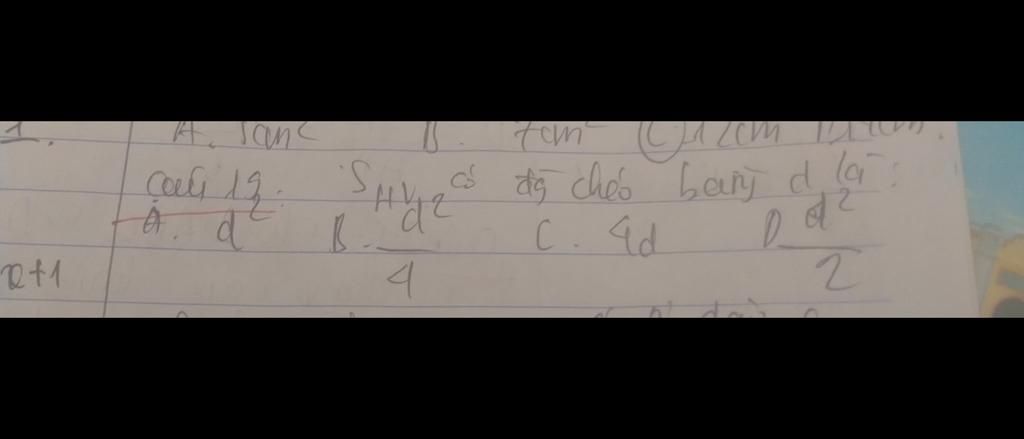 1. A. 5cm² B. 7cm² C. 12cm
Câu 19. S HV có đg chéo bằng d là:
A. d² B. d²/4 C. 4d D d²/2
x+1